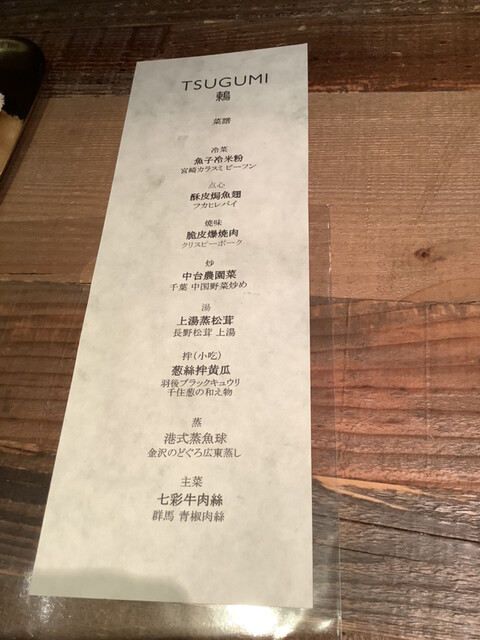 TSUGUMI
鶫
菜譜
冷菜
魚子冷米粉
宮崎カラスミ ビーフン
点心
酥皮焗魚翅
フカヒレパイ
焼味
脆皮爆焼肉
クリスピーポーク
炒
中台農園菜
千葉 中国野菜炒め
湯
上湯蒸松茸
長野松茸 上湯
拌(小吃)
葱絲拌黄瓜
羽後ブラックキュウリ
千住葱の和え物
蒸
港式蒸魚球
金沢のどぐろ広東蒸し
主菜
七彩牛肉絲
群馬 青椒肉絲